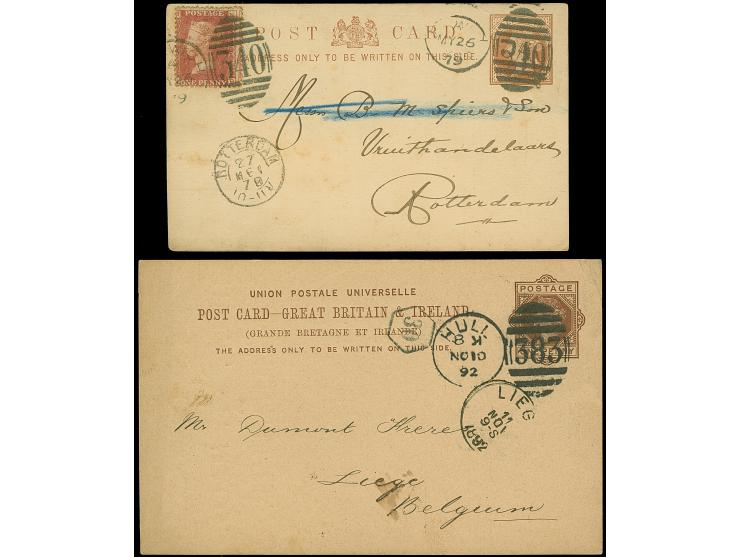 POSTAGE
ONE PENNY
340
POST CARD
ADDRESS ONLY TO BE WRITTEN ON THIS SIDE
MY 26
79
340
Messrs B. M. Spiers & Son
Vruithandelaars
Rotterdam
ROTTERDAM
27
MEI
UNION POSTALE UNIVERSELLE
POST CARD—GREAT BRITAIN & IRELAND
(GRANDE BRETAGNE ET IRLANDE)
THE ADDRESS ONLY TO BE WRITTEN ON THIS SIDE.
POSTAGE
HULL
8 K
NO 10
92
383
LIEG
11
NOV
9-S
1892
Mr. Dumont Frere
Liege
Belgium